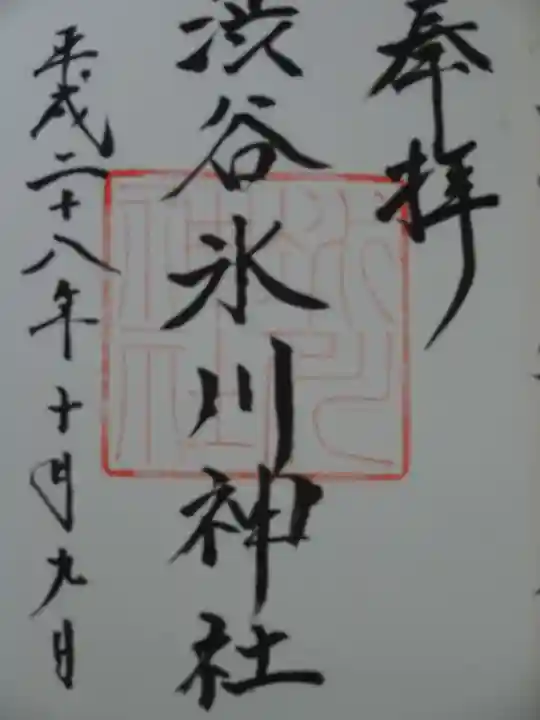 奉拝
渋谷氷川神社
平成二十八年十月九日